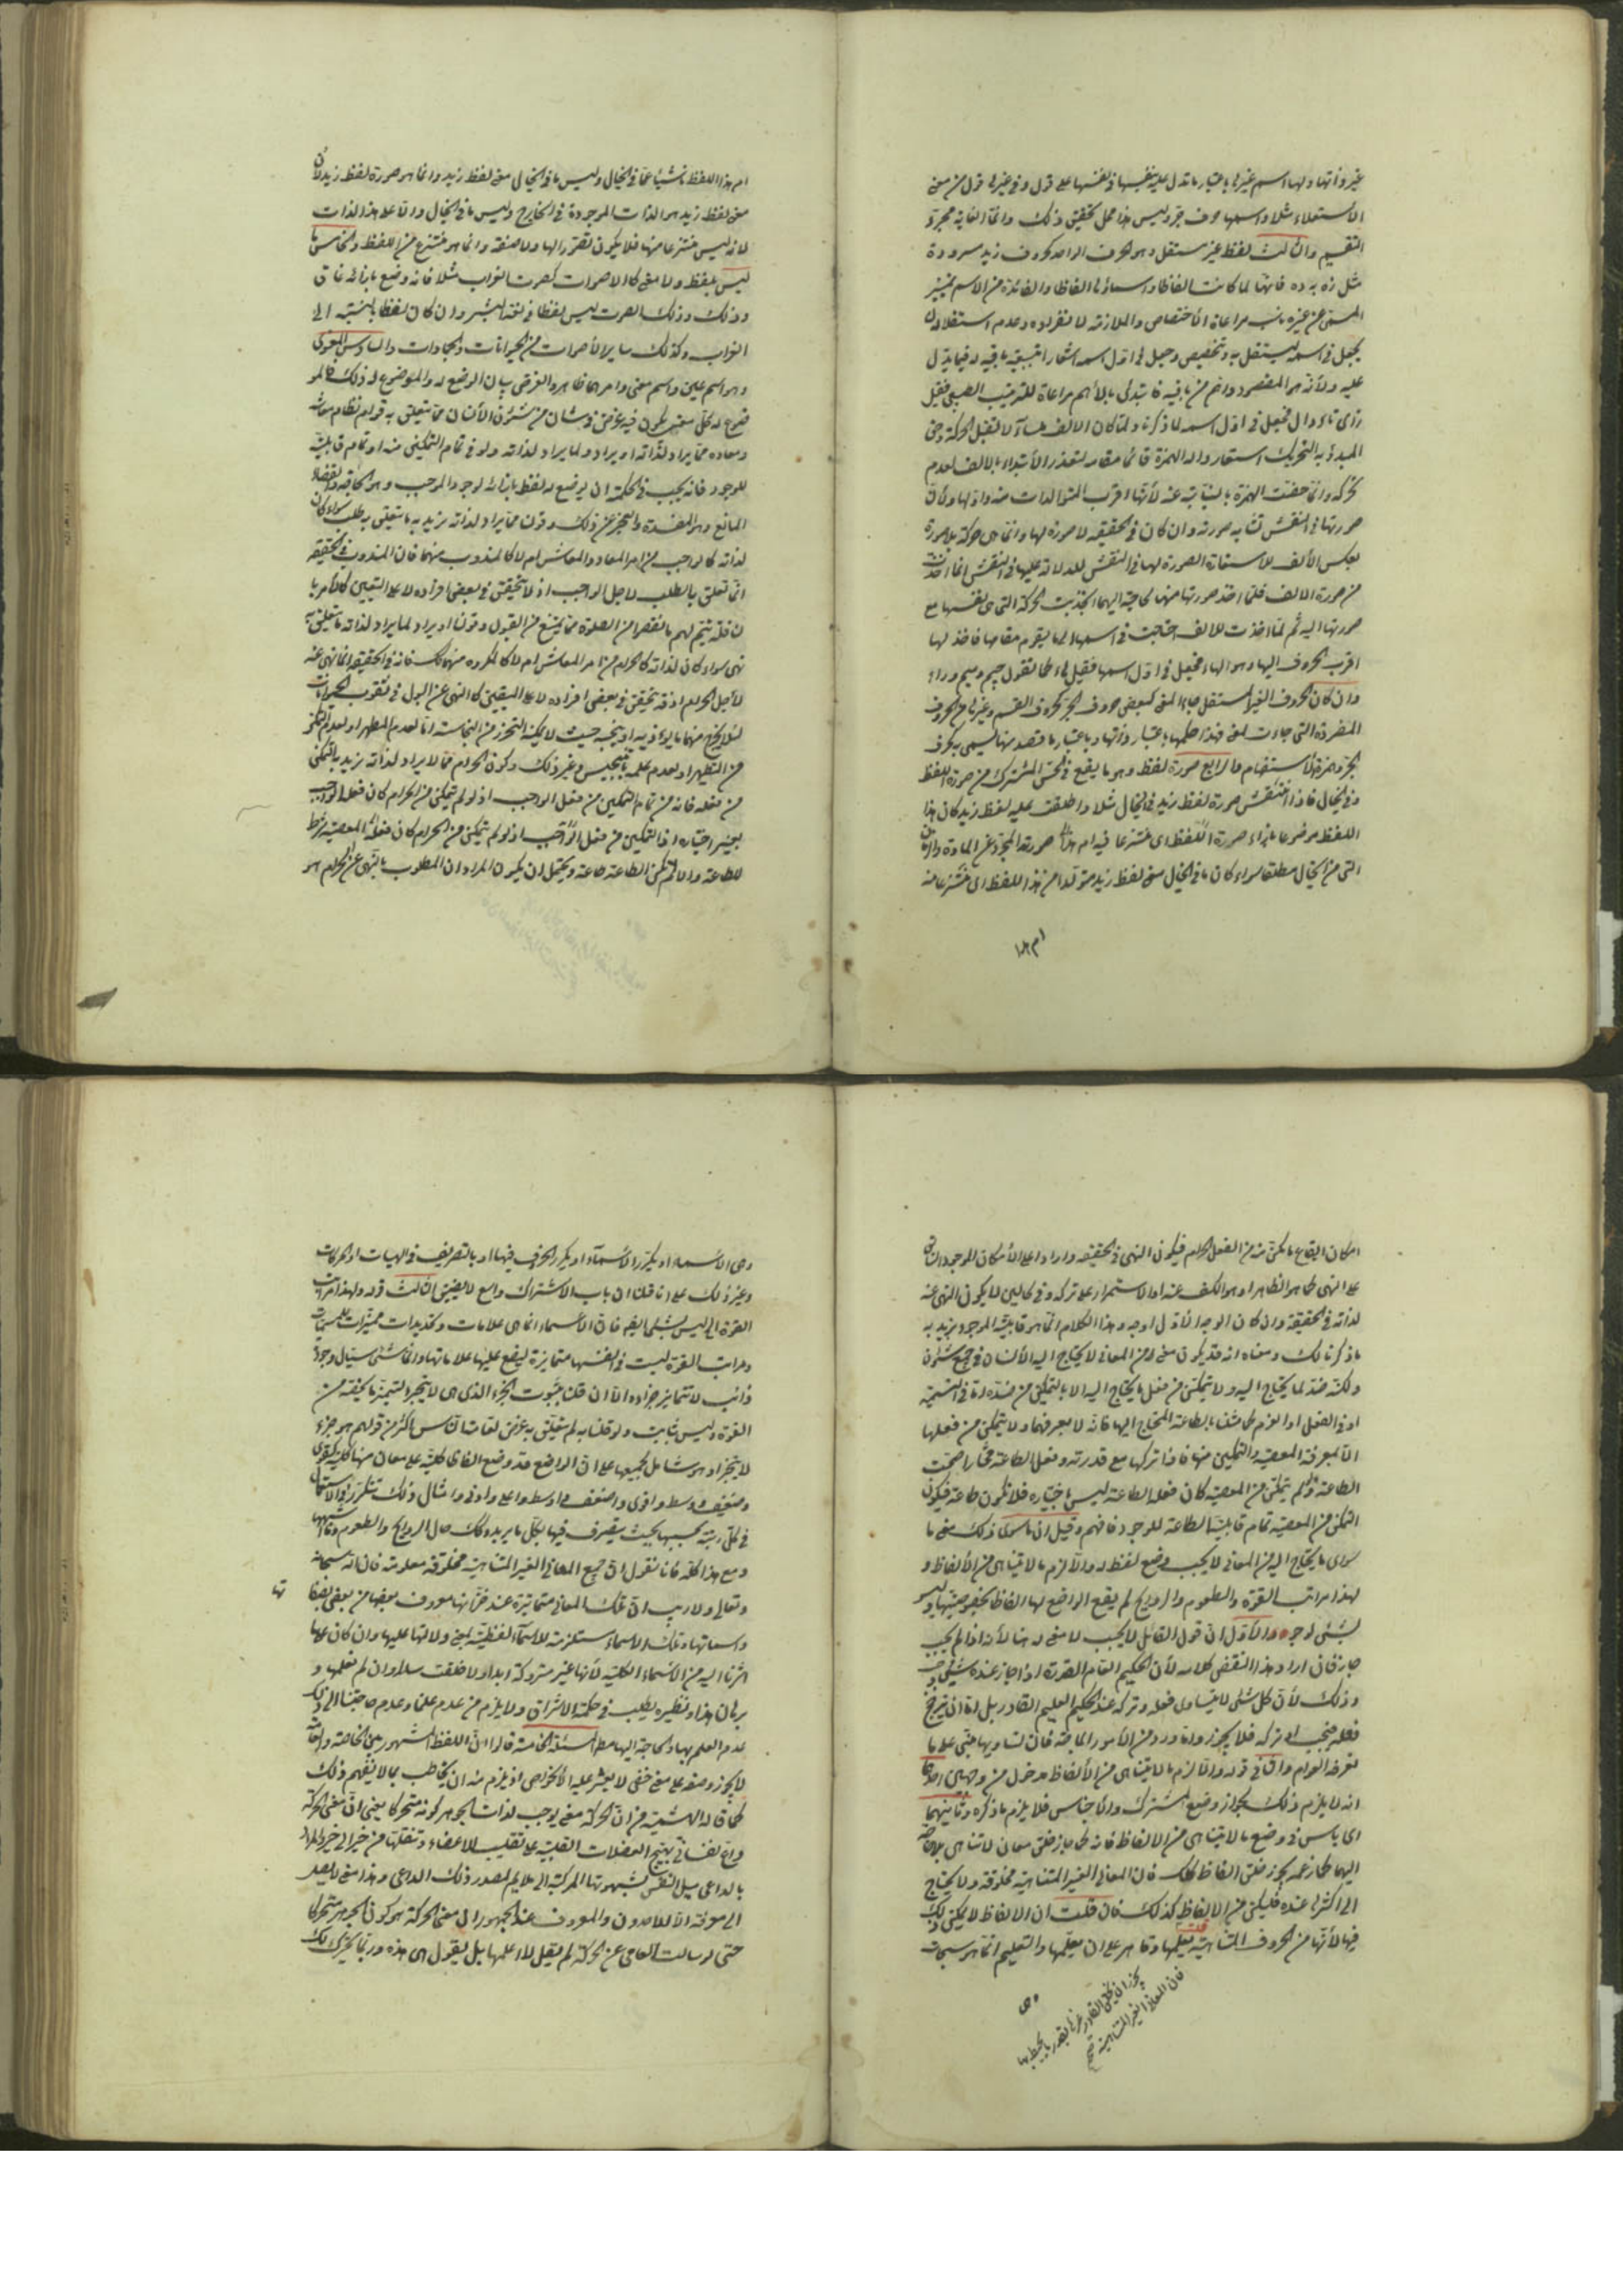 غير ذاتها ولها اسم غيرها باعتبار ما تدل عليه بنفسها في نفسها على قول وفي غيرها على قول من معنى
الاستعلاء مثلا واسمها حرف جر وليس هذا محل تحقيق ذلك وانما الغاية مجرد
التقسيم والثالث لفظ غير مستقل وهو الحرف الواحد كحروف زيد سرودة
مثل زه يه ده فانها لما كانت الفاظا واسماؤها الفاظا والفائدة من الاسم تمييز
المسمى عن غيره مراعاة الاختصاص والملازمة لانفراده وعدم استقلاله
يجعل في اسمه ليستقل به وتخصيص وجعل في اول اسمه اشعارا بتبعية باقيه له فيما يدل
عليه ولأنه هو المقصود واهم من باقيه فابتدئ بالأهم مراعاة للترتيب الطبيعي فقيل
زاي تاء دال فجعل في اول اسمه لما ذكرنا ولما كان الالف لا تقبل الحركة وحق
المبدؤ به التحريك استعاروا له الهمزة قائما مقامه لتعذر الابتداء بالالف لعدم
تحركه وانما خصت الهمزة بالنيابة عنه لأنها اقرب المتولدات منه واولها ولأن
صورتها في النقش تشابه صورته وان كان في الحقيقة لا صورة لها وانما هي حركة بلا صورة
بعكس الألف للاستعارة الصورة لها في النقش للدلالة عليها في النقش انما اخذت
من صورة الالف فلما اخذ صورتها منها لحاجته اليهما انجذبت الحركة التي هي نفسها مع
صورتها اليه ثم لما اخذت للالف احتاجت في اسمها الى ما يقوم مقامها فاخذ لها
اقرب الحروف اليها وهو الهاء فجعل في اول اسمها فقيل هاء كما تقول جيم وميم وراء
وان كان الحروف الغير المستقل جاء المعنى كبعض حروف الجر كحروف القسم وغيرها من الحروف
المفردة التي جاءت لمعنى فهذا حكمها باعتبار ذاتها وباعتبار ما قصد منها ليسمى بحرف
الجر وهمزة الاستفهام والرابع صورة لفظ وهو ما يقع في الحس المشترك من صورة اللفظ
وفي الخيال فاذا انتقش صورة لفظ زيد في الخيال مثلا واطلقت عليه لفظ زيد كان هذا
اللفظ موضوعا بازاء صورة اللفظ اي منتزعا فيه ام هذا صورته المجرد عن المادة
التي من الخيال مطلقا سواء كان ما في الخيال معنى لفظ زيد متولدا من هذا اللفظ اي منتزعا منه
ام هذا
ام هذا اللفظ ناشيا عما في الخيال وليس ما في الخيال معنى لفظ زيد وانما هو صورة لفظ زيد لأن
معنى لفظ زيد هو الذات الموجودة في الخارج وليس ما في الخيال دالا على هذا الذات
لانه ليس منتزعا منها فلا يكون تصورا لها ولا صفة وانما هو منتزع من اللفظ والخامس ما
ليس بلفظ ولا معنى كالاصوات كصوت الغراب مثلا فانه وضع بازائه غاق
وذلك وذلك الصوت ليس لفظا في لغة البشر وان كان لفظا بالنسبة الى
الغراب وكذلك ساير الأصوات من الحيوانات والجمادات والسادس المعنوي
وهو اسم عين واسم معنى وامرهما ظاهر والغرض بيان الوضع له والموضوع له ذلك فالمو
ضوع له كل معنى يكون فيه غرض في شان من شؤن الأنسان مما يتعلق به قوام نظام معاشه
ومعاده مما يراد لذاته او يراد ولما يراد لذاته ولو في تمام التمكين منه او تمام قابليته
للوجود فانه يجب في الحكمة ان يوضع له لفظ بازائه لوجود الموجب وهو الحاجة وانتفاء
المانع وهو المفسدة والعجز عن ذلك وقولنا مما يراد لذاته نريد به ما تتعلق به طلب سواء كان
لذاته كالواجب من امر المعاد والمعاش ام لا كالمندوب منهما فان المندوب في الحقيقة
انما تعلق بالطلب لاجل الواجب اذ لا تتحقق في بعض افراده لا على التعيين كالأمر با
لنافلة ليتم لهم ما نقص من الصلوة مما يمنع من القبول وقولنا او يراد لما يراد لذاته ما تعلق به
نهي سواء كان لذاته كالحرام من امر المعاش ام لا كالمكروه منهما كك فانه في الحقيقة انما نهى عنه
لأجل الحرام اذ قد تتحقق في بعض افراده لا على اليقين كالنهي عن البول في ثقوب الحيوانات
لئلا يخرج منها ما يؤذيه او ينجسه حيث لا يمكنه التحرز من النجاسة اما لعدم المطهر او لعدم التمكن
من التطهير او لعدم علمه بالتنجيس وغير ذلك وكون الحرام مما لا يراد لذاته نريد به التمكن
من فعله فانه من تمام التمكين من فعل الواجب اذ لو لم يتمكن من الحرام كان فعله الواجب
بغير اختياره اذ التمكين من فعل الواجب اذ لو لم يتمكن من الحرام كان فعله المعصية شرط
للطاعة والا لم تكن الطاعة طاعة ويحتمل ان يكون المراد ان المطلوب بالنهي عن الحرام هو
امكان ايقاع ما يمكن منه من الفعل الحرام فيكون النهي في الحقيقة واردا على الأمكان الموجود الثابت
على النهي كما هو الظاهر او هو الكف عنه او الاستمرار على تركه وفي كالين لا يكون النهي عنه
لذاته في الحقيقة وان كان الوجه الأول اوجه وهذا الكلام انما هو قابلية الموجود يزيد به
ما ذكرنا لك ومعناه انه قد يكون معنى من المعاني لا يحتاج اليه الأنسان في جميع شئون
ولكنه ضد لما يحتاج اليه ولا يتمكن من فعل ما يحتاج اليه الا بالتمكن من ضده اما في التسمية
او في الفعل او العزم كما مثلنا بالطاعة المحتاج اليها فانه لا يعرفها ولا يتمكن من فعلها
الا بمعرفة المعصية والتمكين منها فاذا تركها مع قدرته وفعل الطاعة مختارا صحت
الطاعة ولو لم يتمكن من المعصية كان فعله الطاعة ليس باختياره فلا تكون طاعة فيكون
التمكن من المعصية تمام قابلية الطاعة للوجود فافهم وقيل ان ما سوى ذلك معنى ما
سوى ما يحتاج اليه من المعاني لا يجب وضع لفظ له والا لزم ما لا يتناهى من الألفاظ و
لهذا مراتب القوة والطعوم والروايح لم يقع الواضع لها الفاظا بخصوصيتها وليس
بشئ لوجوه الأول ان قول القائل لا يجب لا معنى له هنا لأنه اذا لم يجب
جاز فان اراد هذا انتقض كلامه لأن الحكيم التام القدرة اذا جاز عنده شئ وجب
وذلك لأن كل شئ لا يتساوى فعله وتركه عند الحكيم العليم القادر بل اما ان يترجح
فعله فيجب او تركه فلا يجوز واما ورد من الأمور المباحة فان تساويها مبني على ما
تعرفه العوام والثاني قوله والا لزم ما لا يتناهى من الألفاظ مدخول من وجهين احدهما
انه لا يلزم ذلك بجواز وضع المشترك والأجناس فلا يلزم ما ذكره وثانيهما
اي باس في وضع ما لا يتناهى من الالفاظ فانه كما جاز خلق معان لا تتناهى بلا حاجة
اليها كما زعم يجوز خلق الفاظ كك فان المعاني الغير المتناهية مخلوقة ولا يحتاج
الى اكثرها عنده فليكن من الالفاظ كذلك فان قلت ان الالفاظ لا يمكن ذلك
فيها لأنها من الحروف المتناهية قلت يعلمها وقاهر على ان يعلمها والتعليم انما هو سبحانه
وهي
فان المعاني الغير المتناهية
وهي الاسماء او يكرر الاسماء او يكرر الحرف فيها او بالتصريف في الهيات او الحركات
وغير ذلك على انا قلنا ان باب الاشتراك واسع لا يضيق الثالث قوله ولهذا مراتب
القوة الى ليس بشئ ايضا فان الأسماء انما هي علامات وتحديدات مميزات للمسميات
ومراتب القوة ليست في انفسها متمايزة ليضع عليها علاماتها وانما شئ سيال وجود
ذائب لا تتمايز اجزاءه الا ان قلنا بثبوت الجزء الذي هي لا يتجزء لتميز ما يخصه من
القوة وليس بثابت ولو قلنا به لم يتعلق به غرض لغات الناس باكثر من قولهم هو جزء
لا يتجزء او هو شامل لجميعها على ان الواضع قد وضع الفاظا كلية على معان منها كلية كقوي
وضعيف ووسط واقوى واضعف واوسط واعلى وادنى وامثال ذلك تتكرر في الاستعمال
في كل رتبة بحسبها بحيث يتصرف فيها لكل ما يريد وكك حال الروايح والطعوم وما اشبهها
ومع هذا كله فانا نقول ان جميع المعاني الغير المتناهية مخلوقة معلومة فان له سبحانه
وتعالى ولا ريب ان تلك المعاني متمايزة عند خزانها معروف بعضها من بعض بصفا
تها
واسماءها وتلك الاسماء مستلزمة للاسماء اللفظية بمعنى دلالتها عليها وان كان على ما
اشرنا اليه من الأسماء الكلية لأنها غير متروكة ابدا ولا خلقت سدا وان لم نعلمها و
برهان هذا ونظيره يطلب في حكمة الاشراق ولا يلزم من عدم علمنا وعدم حاجتنا الى ذلك
عدم العلم بها والحاجة اليها مطلقا المسئلة الخامسة قالوا ان اللفظ المشهور بين الخاصة والعامة
لا يجوز وضعه على معنى خفي لا يعثر عليه الا الخواص اذ يلزم منه ان يخاطب بما لا يفهم ذلك
كما قاله الهشمية من ان الحركة معنى يوجب لذات الجوهر كونه متحركا يعني ان معنى الحركة
داع نفساني يهيج العضلات القلبية على تقليب الاعضاء وتنقلها من حيز الى حيز والمراد
بالداعي ميل النفس بشهوتها المركبة الى ملايم لصدور ذلك الداعي وهذا معنى لا يصل
الى معرفته الا الاوحدون والمعروف عند الجمهور ان معنى الحركة هو كون الجوهر متحركا
حتى لو سالت العامي عن الحركة لم يقل لا اعلمها بل يقول هي هذه وربما يحرك لك